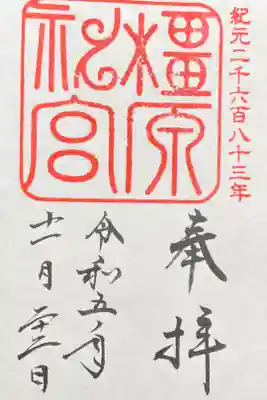 紀元二千六百八十三年
橿原
神宮
奉拝
令和五年
十一月二十三日